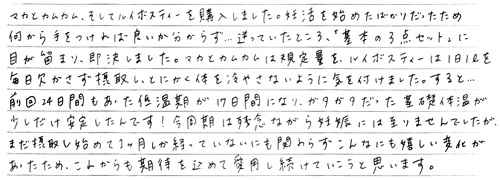 マカとカムカム、そしてルイボスティーを購入しました。妊活を始めたばかりだったため
何から手をつければ良いか分からず…迷っていたところ、「基本の3点セット」に
目が留まり、即決しました。マカとカムカムは規定量を、ルイボスティーは1日1ℓを
毎日欠かさず摂取し、とにかく体を冷やさないように気を付けました。すると…
前回24日間もあった低温期が17日間になり、ガタガタだった基礎体温が
少しだけ安定したんです！今周期は残念ながら妊娠には至りませんでしたが、
まだ摂取し始めて1ヶ月しか経っていないにも関わらずこんなにも嬉しい変化が
あったため、これからも期待を込めて愛用し続けていこうと思います。